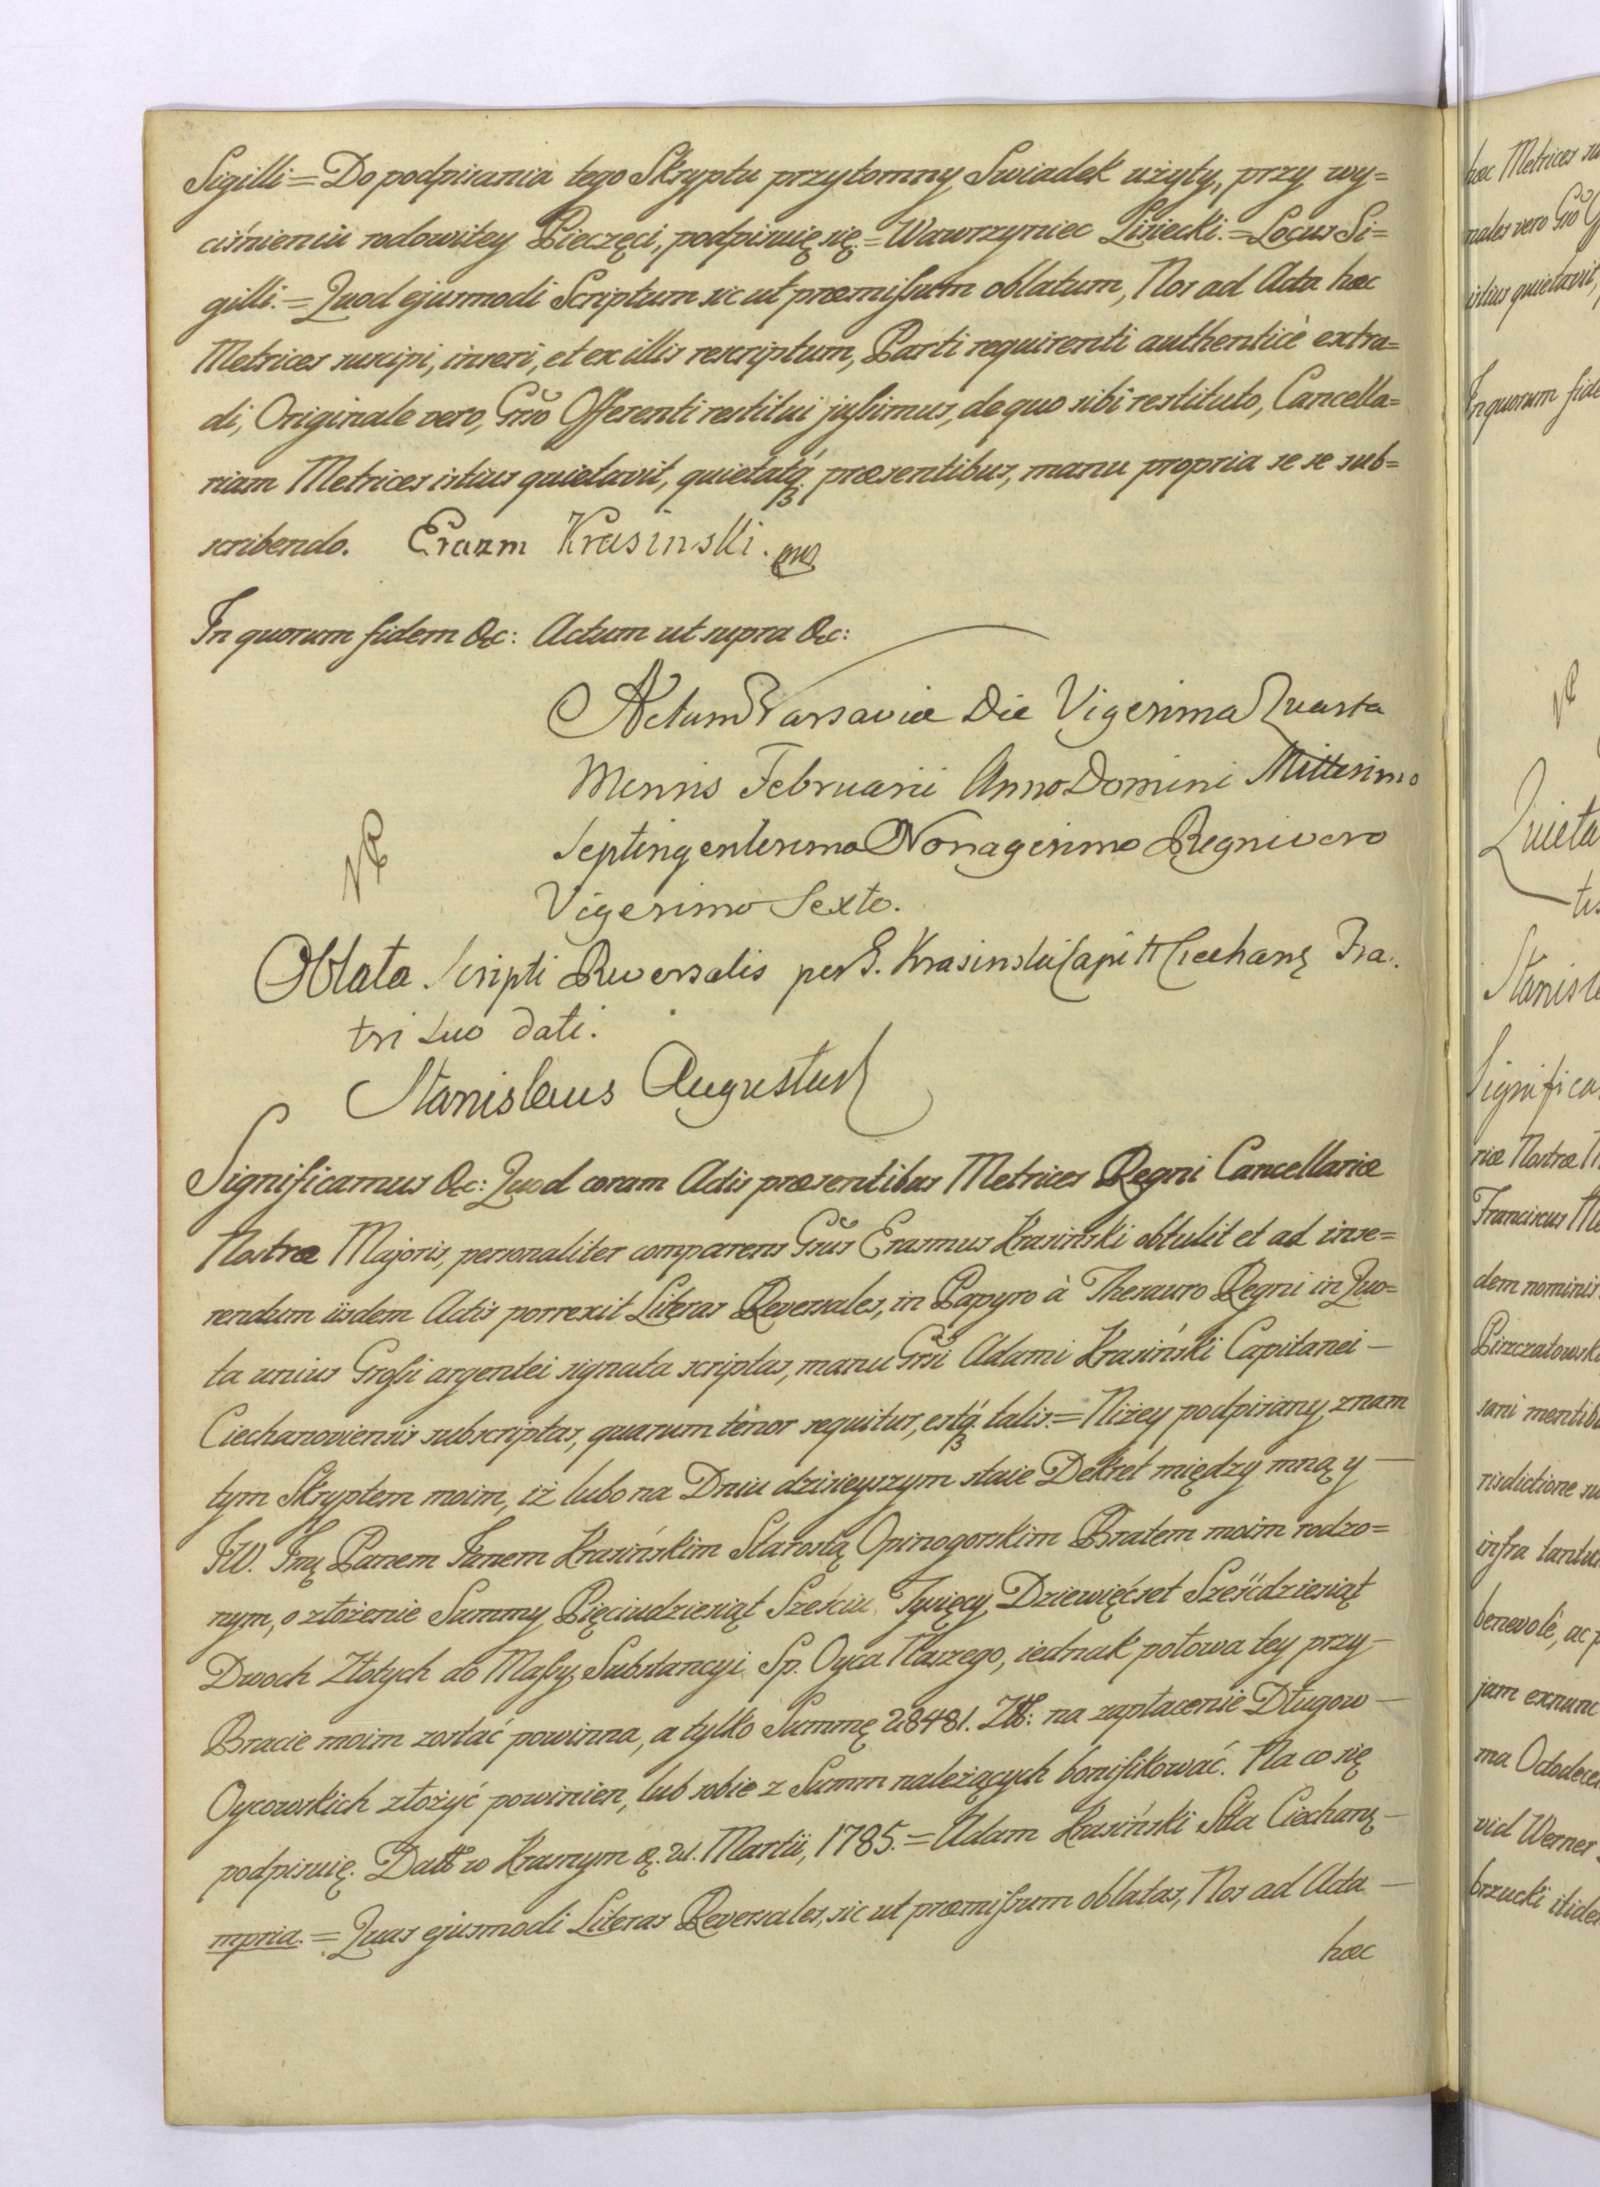 Sigilli = Do podpisania tego Skryptu przytomny Swiadek użyty, przy wy=
ciśnieniu rodowitey Pieczęci, podpisuię się. = Wawrzyniec Lisiecki. = Locus Si=
gilli. = Quod ejusmodi Scriptum sic ut præmissum oblatum, Nos ad Acta hæc
Metrices suscipi, inseri, et ex illis rescriptum, Parti requirenti authenticè extra=
di, Originale vero, Gnso Offerenti restitui jussimus, de quo sibi restituto, Cancella=
riam Metrices istius quietavit, quietatq; præsentibus, manu propria se se sub=
scribendo. Erazm Krasinski. mp
In quorum fidem &c: Actum ut supra &c:
Actum Varsaviæ Die Vigesima Quarta
Mensis Februarii Anno Domini Millesimo
Septingentesimo Nonagesimo Regni vero
Vigesimo Sexto.
Oblata Scripti Reversalis per G. Krasinski Capitt Ciechanę Fra.
tri suo dati.
Stanislaus Augustus
Significamus &c: Quod coram Actis præsentibus Metrices Regni Cancellariæ
Nostræ Majoris, personaliter comparens Gnsus Erasmus Krasinski obtulit et ad inse=
rendum iisdem Actis porrexit Literas Reversales, in Papyro à Thesauro Regni in Quo=
ta unius Grossi argentei signata scriptas, manu Gnsi Adami Krasiński Capitanei —
Ciechanoviensis subscriptas, quarum tenor sequitur, estq; talis. = Niżey podpisany, znam
tym Skryptem moim, iż lubo na Dniu dzisieyszym staie Dekret między mną y —
JW. Jmę Panem Janem Krasińskim Starostą Opinogorskim Bratem moim rodzo=
nym, o złożenie Summy Pięciudziesiąt Sześciu Tysięcy Dziewięćset Sześćdziesiąt
Dwoch Złotych do Massy Substancyi Sp. Oyca Naszego, iednak połowa tey przy —
Bracie moim zostać powinna, a tylko Summę 28481. Złł: na zapłacenie Długow —
Oycowskich złożyć powinien, lub sobie z Summ należących bonifikować. Na co się
podpisuię. Datt w Krasnym d. 21. Martii, 1785. = Adam Krasiński Stta Ciechanę —
mpria. = Quas ejusmodi Literas Reversales, sic ut præmissum oblatas, Nos ad Acta —
hæc